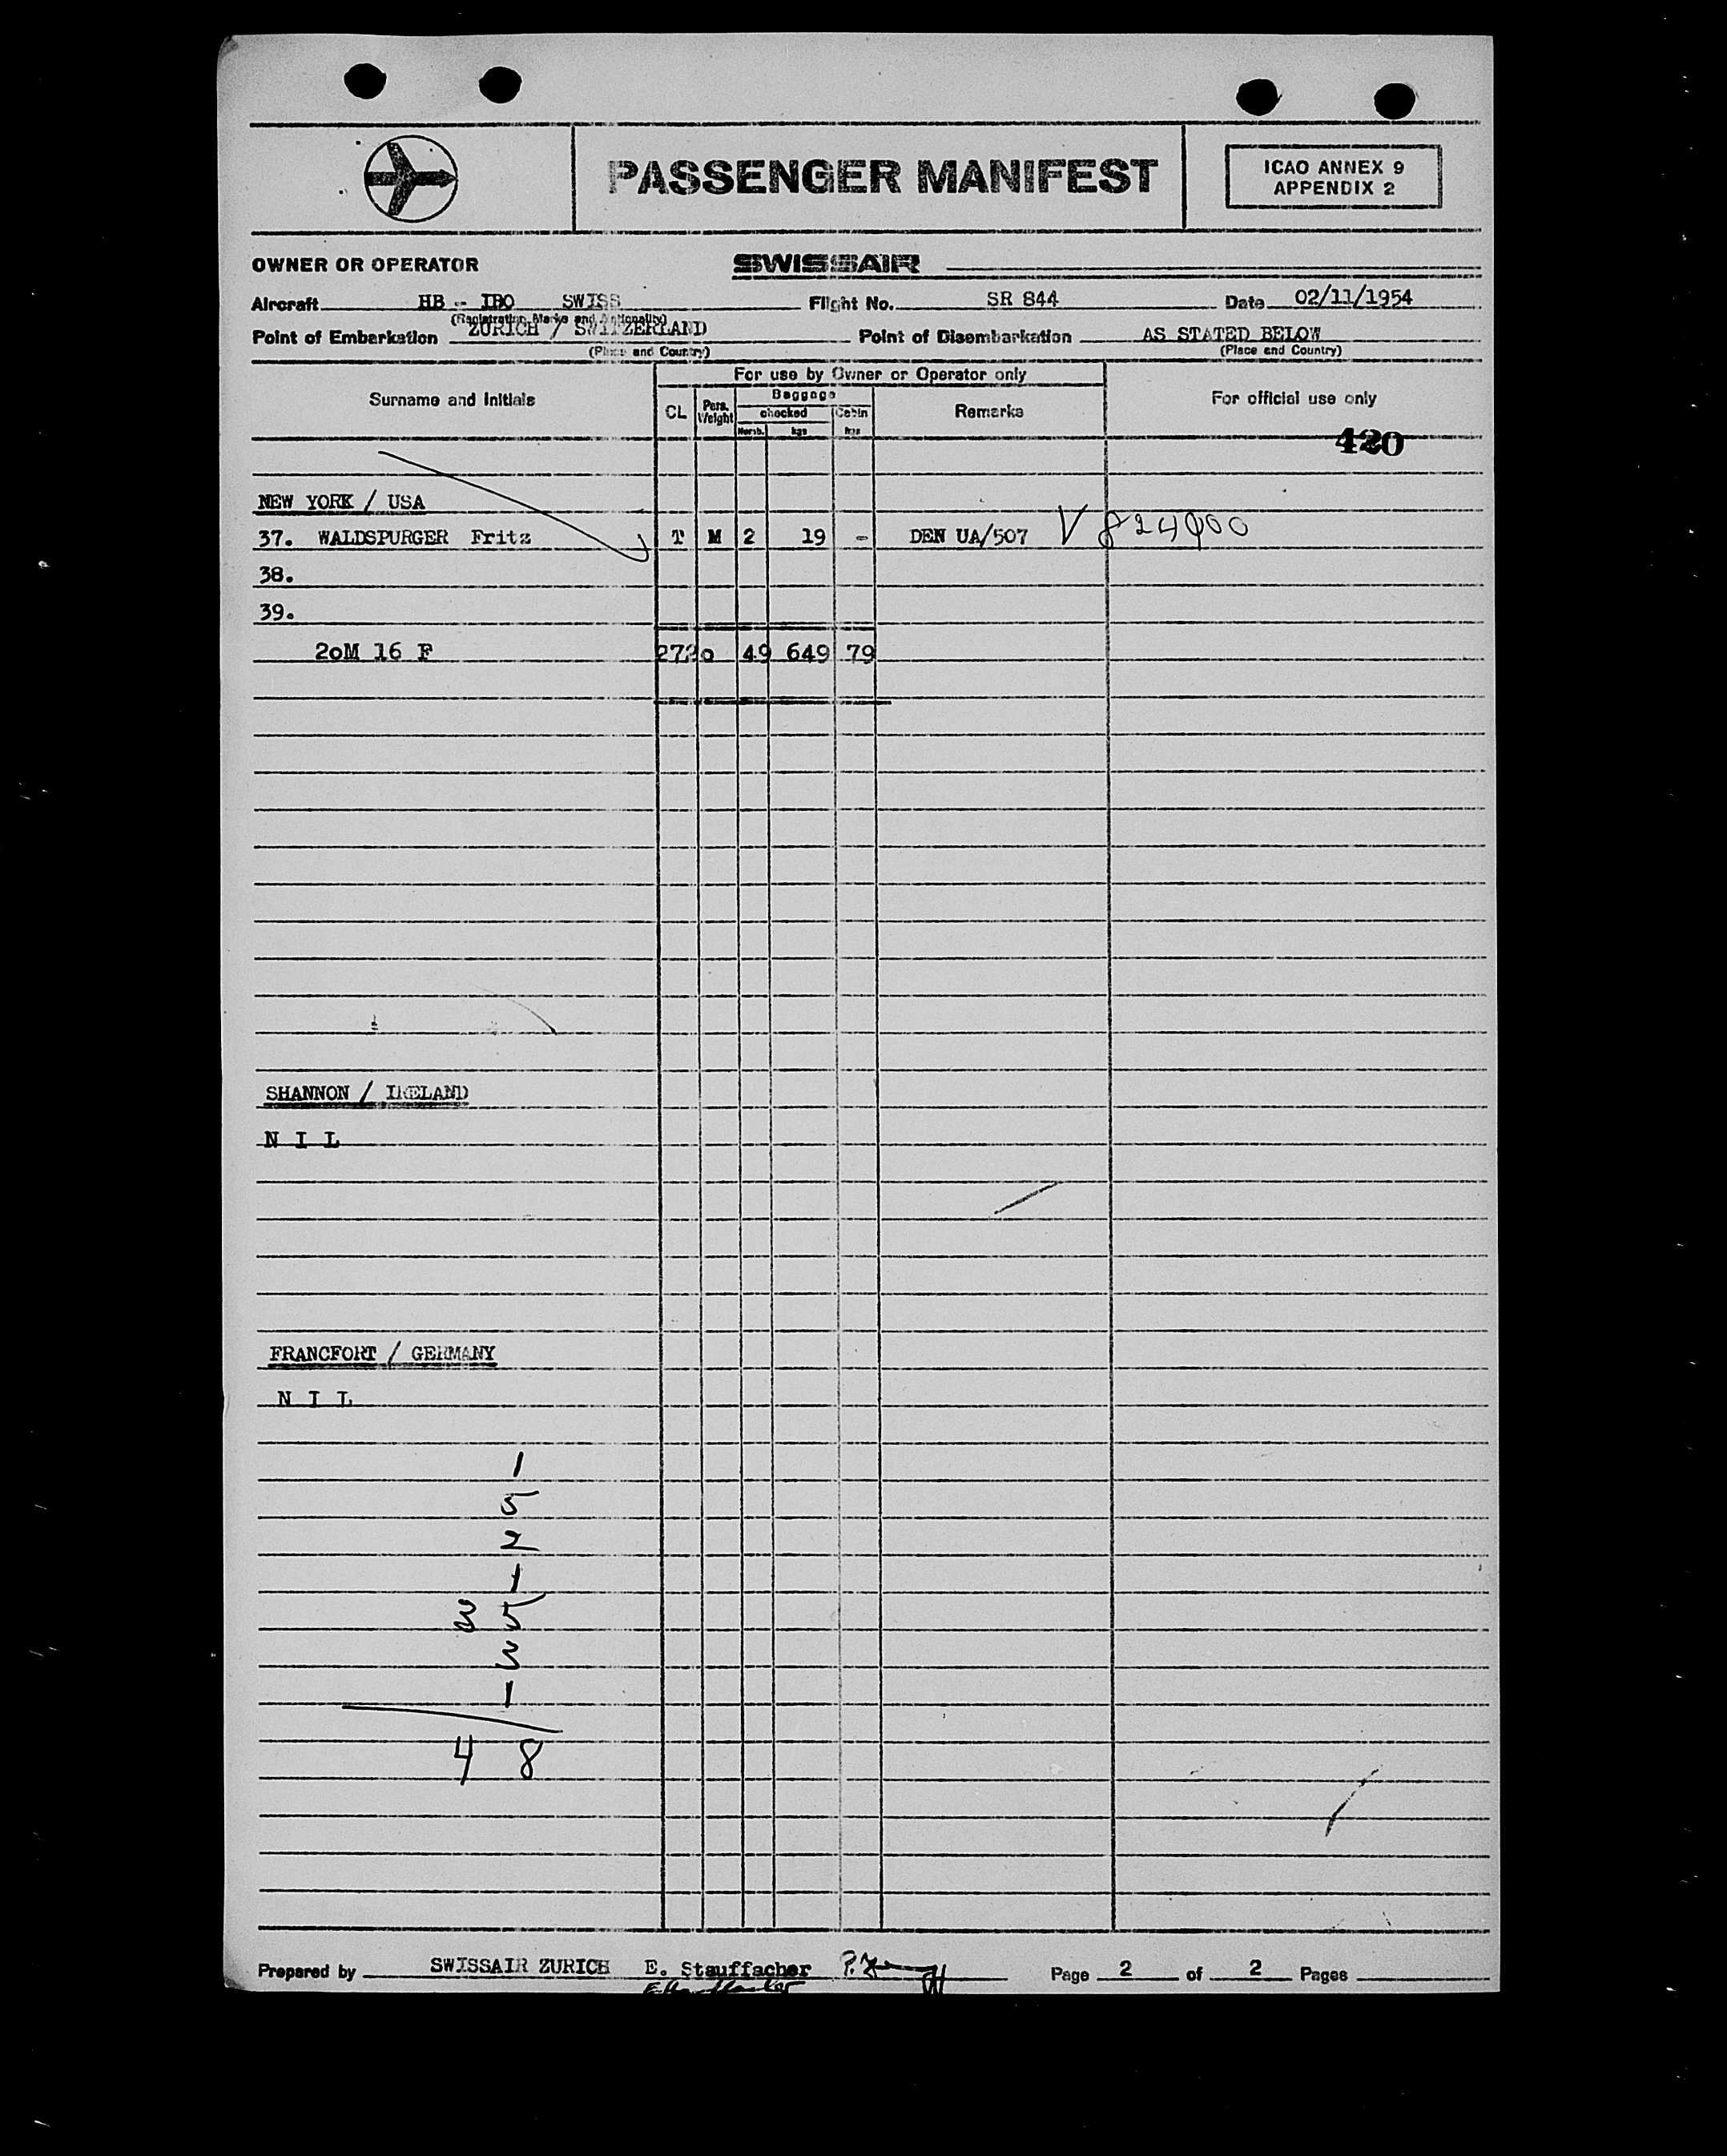 PASSENGER MANIFEST
ICAO ANNEX 9
APPENDIX 2
OWNER OR OPERATOR SWISSAIR
Aircraft HB - IBO SWISS Flight No. SR 844 Date 02/11/1954
(Registration Marks and Nationality)
Point of Embarkation ZURICH / SWITZERLAND Point of Disembarkation AS STATED BELOW
(Place and Country) (Place and Country)
For use by Owner or Operator only
Surname and Initials CL Pers. Weight Baggage checked Cabin Remarks For official use only
Numb. kgs kgs
420
NEW YORK / USA
37. WALDSPURGER Fritz T M 2 19 - DEN UA/507 V 824000
38.
39.
2oM 16 F 272o 49 649 79
SHANNON / IRELAND
N I L
FRANCFORT / GERMANY
N I L
1
5
2
1
3 5
3
1
4 8
Prepared by SWISSAIR ZURICH E. Stauffacher Page 2 of 2 Pages